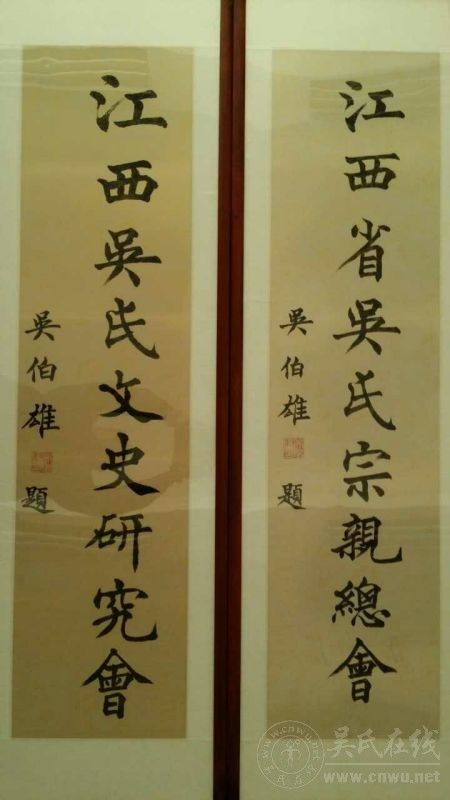 江西省吳氏宗親總會
吳伯雄 題
江西吳氏文史研究會
吳伯雄 題
吴氏在线
www.cnwu.net